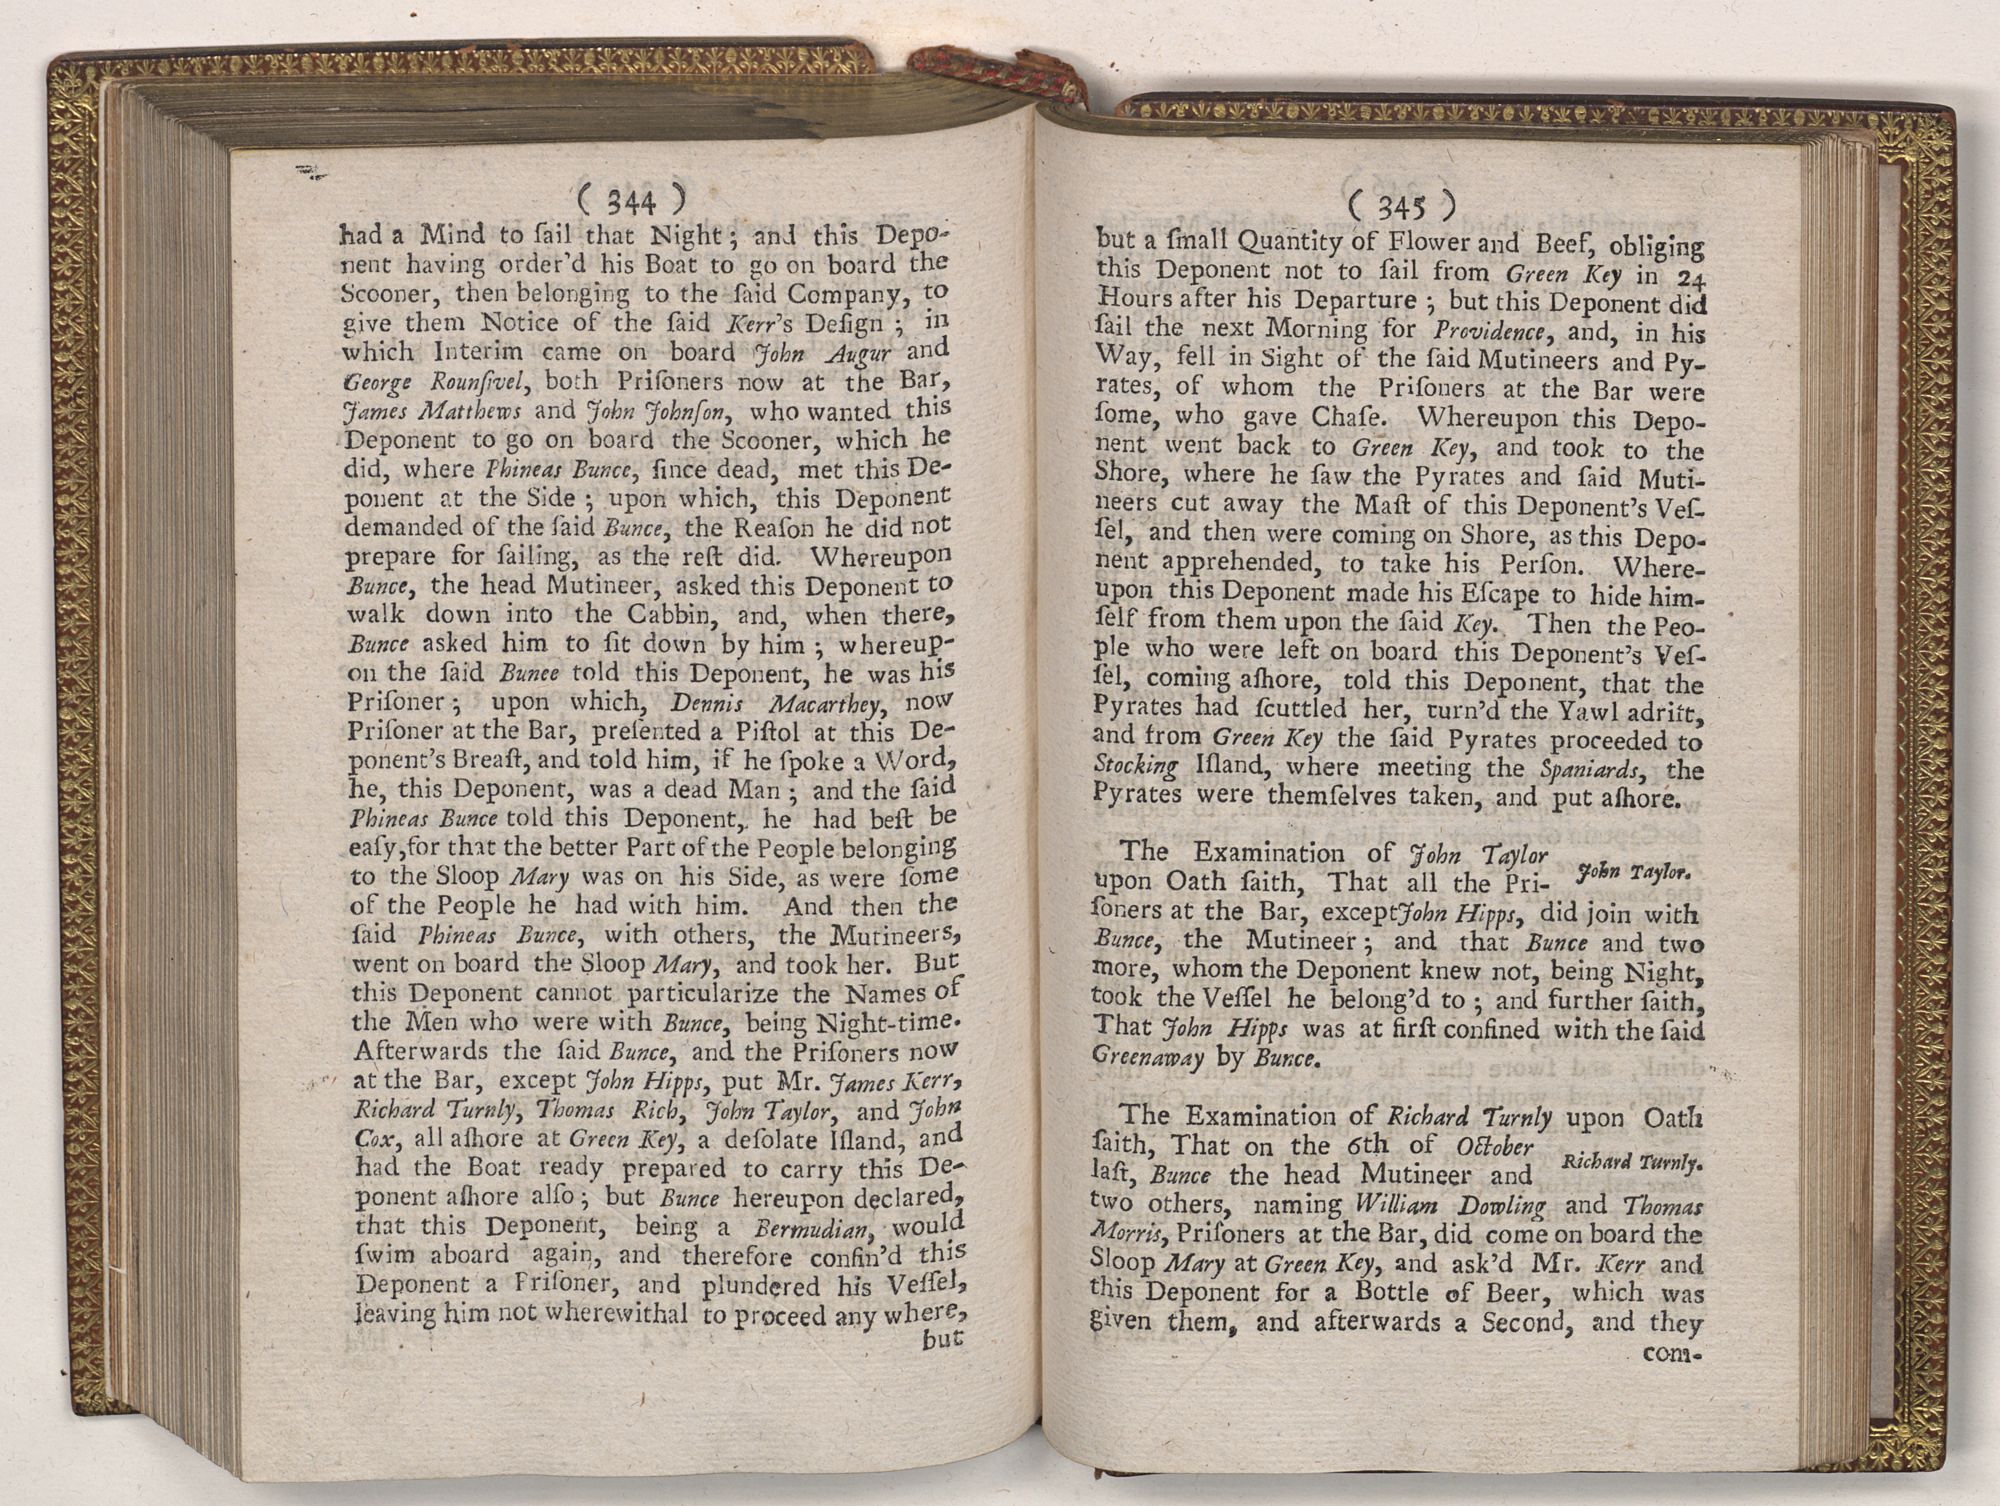 ( 344 )
had a Mind to ſail that Night; and this Depo-
nent having order'd his Boat to go on board the
Scooner, then belonging to the ſaid Company, to
give them Notice of the ſaid Kerr's Deſign; in
which Interim came on board John Augur and
George Rounſivel, both Priſoners now at the Bar,
James Matthews and John Johnſon, who wanted this
Deponent to go on board the Scooner, which he
did, where Phineas Bunce, ſince dead, met this De-
ponent at the Side; upon which, this Deponent
demanded of the ſaid Bunce, the Reaſon he did not
prepare for ſailing, as the reſt did. Whereupon
Bunce, the head Mutineer, asked this Deponent to
walk down into the Cabbin, and, when there,
Bunce asked him to ſit down by him; whereup-
on the ſaid Bunce told this Deponent, he was his
Priſoner; upon which, Dennis Macarthey, now
Priſoner at the Bar, preſented a Piſtol at this De-
ponent's Breaſt, and told him, if he ſpoke a Word,
he, this Deponent, was a dead Man; and the ſaid
Phineas Bunce told this Deponent, he had beſt be
eaſy, for that the better Part of the People belonging
to the Sloop Mary was on his Side, as were ſome
of the People he had with him. And then the
ſaid Phineas Bunce, with others, the Mutineers,
went on board the Sloop Mary, and took her. But
this Deponent cannot particularize the Names of
the Men who were with Bunce, being Night-time.
Afterwards the ſaid Bunce, and the Priſoners now
at the Bar, except John Hipps, put Mr. James Kerr,
Richard Turnly, Thomas Rich, John Taylor, and John
Cox, all aſhore at Green Key, a deſolate Iſland, and
had the Boat ready prepared to carry this De-
ponent aſhore alſo; but Bunce hereupon declared,
that this Deponent, being a Bermudian, would
ſwim aboard again, and therefore confin'd this
Deponent a Priſoner, and plundered his Veſſel,
leaving him not wherewithal to proceed any where,
but
( 345 )
but a ſmall Quantity of Flower and Beef, obliging
this Deponent not to ſail from Green Key in 24
Hours after his Departure; but this Deponent did
ſail the next Morning for Providence, and, in his
Way, fell in Sight of the ſaid Mutineers and Py-
rates, of whom the Priſoners at the Bar were
ſome, who gave Chaſe. Whereupon this Depo-
nent went back to Green Key, and took to the
Shore, where he ſaw the Pyrates and ſaid Muti-
neers cut away the Maſt of this Deponent's Veſ-
ſel, and then were coming on Shore, as this Depo-
nent apprehended, to take his Perſon. Where-
upon this Deponent made his Eſcape to hide him-
ſelf from them upon the ſaid Key. Then the Peo-
ple who were left on board this Deponent's Veſ-
ſel, coming aſhore, told this Deponent, that the
Pyrates had ſcuttled her, turn'd the Yawl adrift,
and from Green Key the ſaid Pyrates proceeded to
Stocking Iſland, where meeting the Spaniards, the
Pyrates were themſelves taken, and put aſhore.
The Examination of John Taylor
John Taylor.
upon Oath ſaith, That all the Pri-
ſoners at the Bar, except John Hipps, did join with
Bunce, the Mutineer; and that Bunce and two
more, whom the Deponent knew not, being Night,
took the Veſſel he belong'd to; and further ſaith,
That John Hipps was at firſt confined with the ſaid
Greenaway by Bunce.
The Examination of Richard Turnly upon Oath
ſaith, That on the 6th of October
Richard Turnly.
laſt, Bunce the head Mutineer and
two others, naming William Dowling and Thomas
Morris, Priſoners at the Bar, did come on board the
Sloop Mary at Green Key, and ask'd Mr. Kerr and
this Deponent for a Bottle of Beer, which was
given them, and afterwards a Second, and they
com-